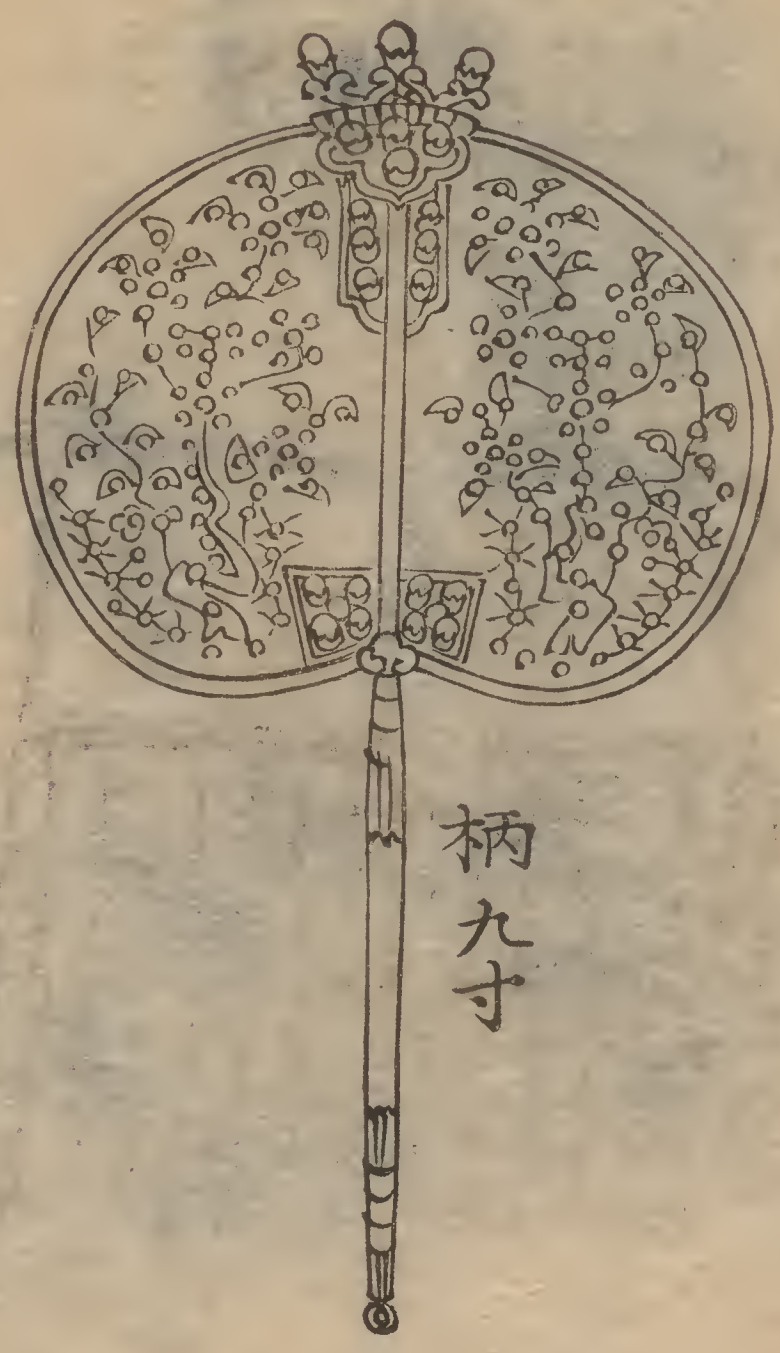 柄九寸